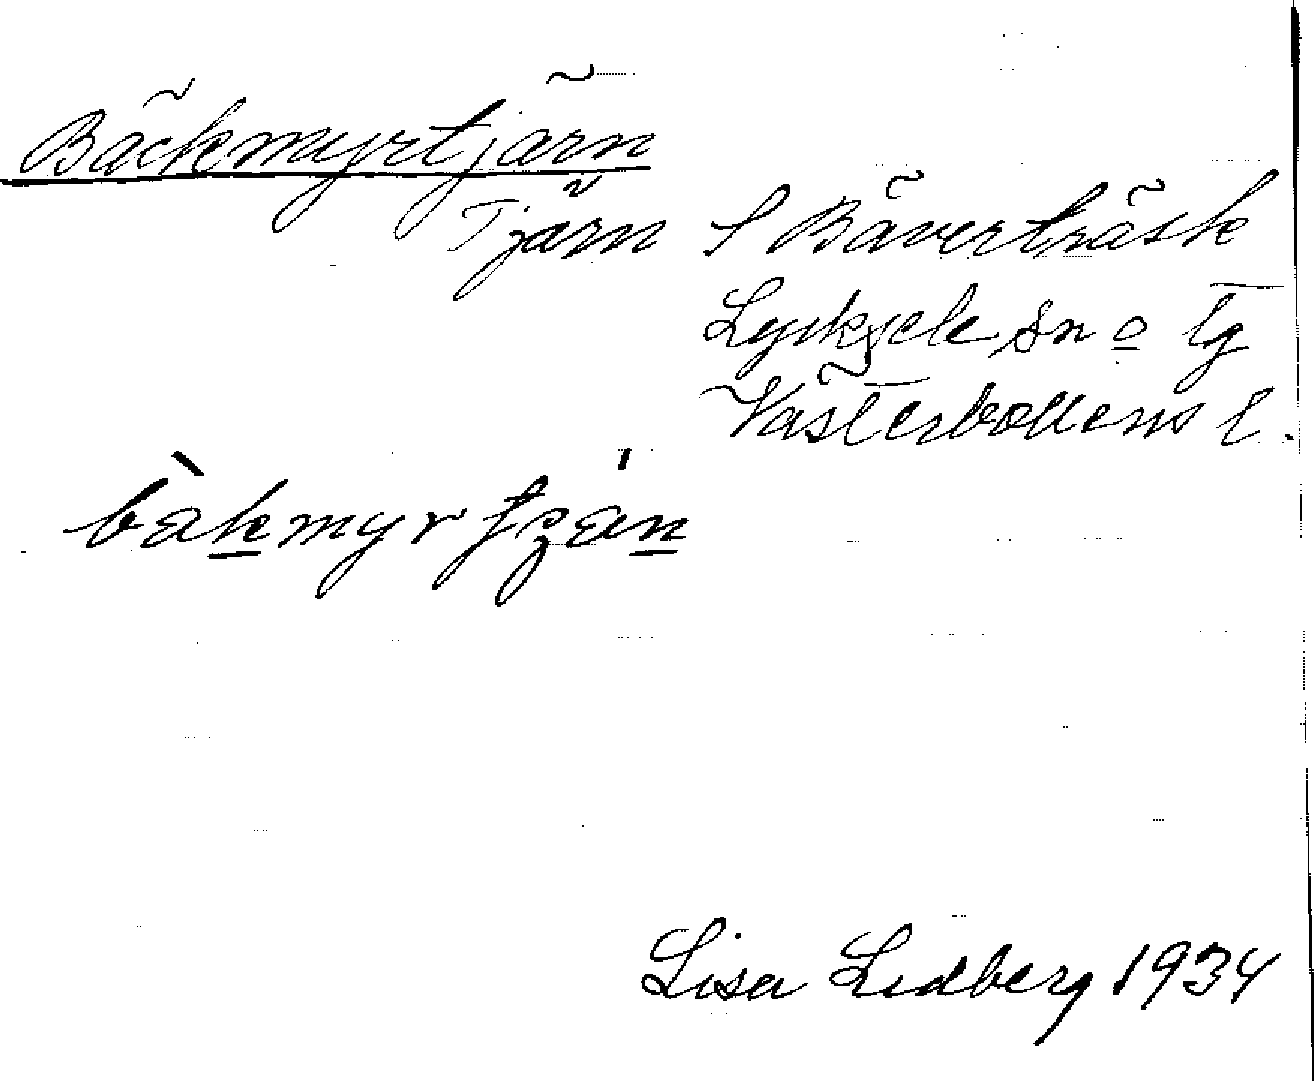 Bäckmyrtjärn
Tjärn S Bäverträsk
Lycksele sn o tg
Västerbottens l.
Lisa Lidberg 1934